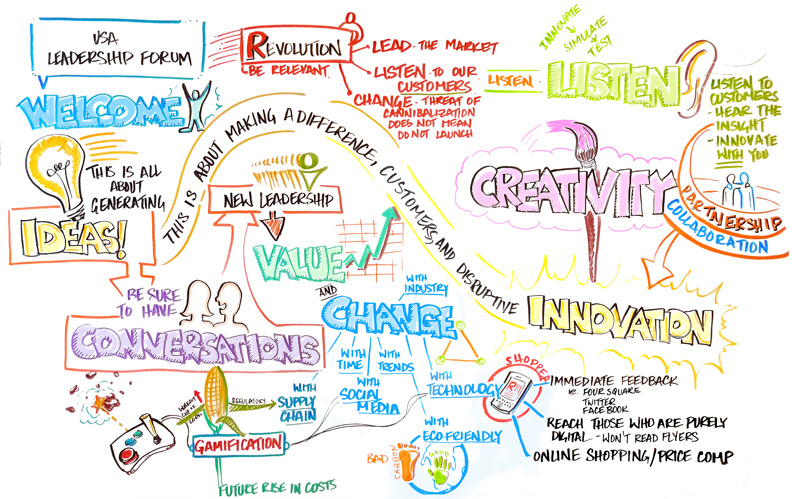 USA
LEADERSHIP FORUM
WELCOME
REVOLUTION
BE RELEVANT
LEAD - THE MARKET
LISTEN - TO OUR
CUSTOMERS
CHANGE - THREAT OF
CANNIBALIZATION
DOES NOT MEAN
DO NOT LAUNCH
INNOVATE
SIMULATE
TEST
LISTEN
LISTEN
LISTEN TO
CUSTOMERS
- HEAR THE
INSIGHT
- INNOVATE
WITH YOU
THIS IS ALL
ABOUT
GENERATING
IDEAS!
THIS IS ABOUT MAKING A DIFFERENCE, CUSTOMERS, AND DISRUPTIVE
INNOVATION
CREATIVITY
PARTNERSHIP
COLLABORATION
NEW LEADERSHIP
VALUE
AND
CHANGE
BE SURE
TO HAVE
CONVERSATIONS
WITH
INDUSTRY
WITH
TIME
WITH
TRENDS
WITH
SOCIAL
MEDIA
WITH
SUPPLY
CHAIN
WITH
TECHNOLOGY
WITH
ECO-FRIENDLY
BAD
CARBON
GOOD
REGULATORY
GAMIFICATION
FUTURE RISE IN COSTS
SHOPPER
R
IMMEDIATE FEEDBACK
IE. FOUR SQUARE
TWITTER
FACEBOOK
REACH THOSE WHO ARE PURELY
DIGITAL - WON'T READ FLYERS
ONLINE SHOPPING/PRICE COMP